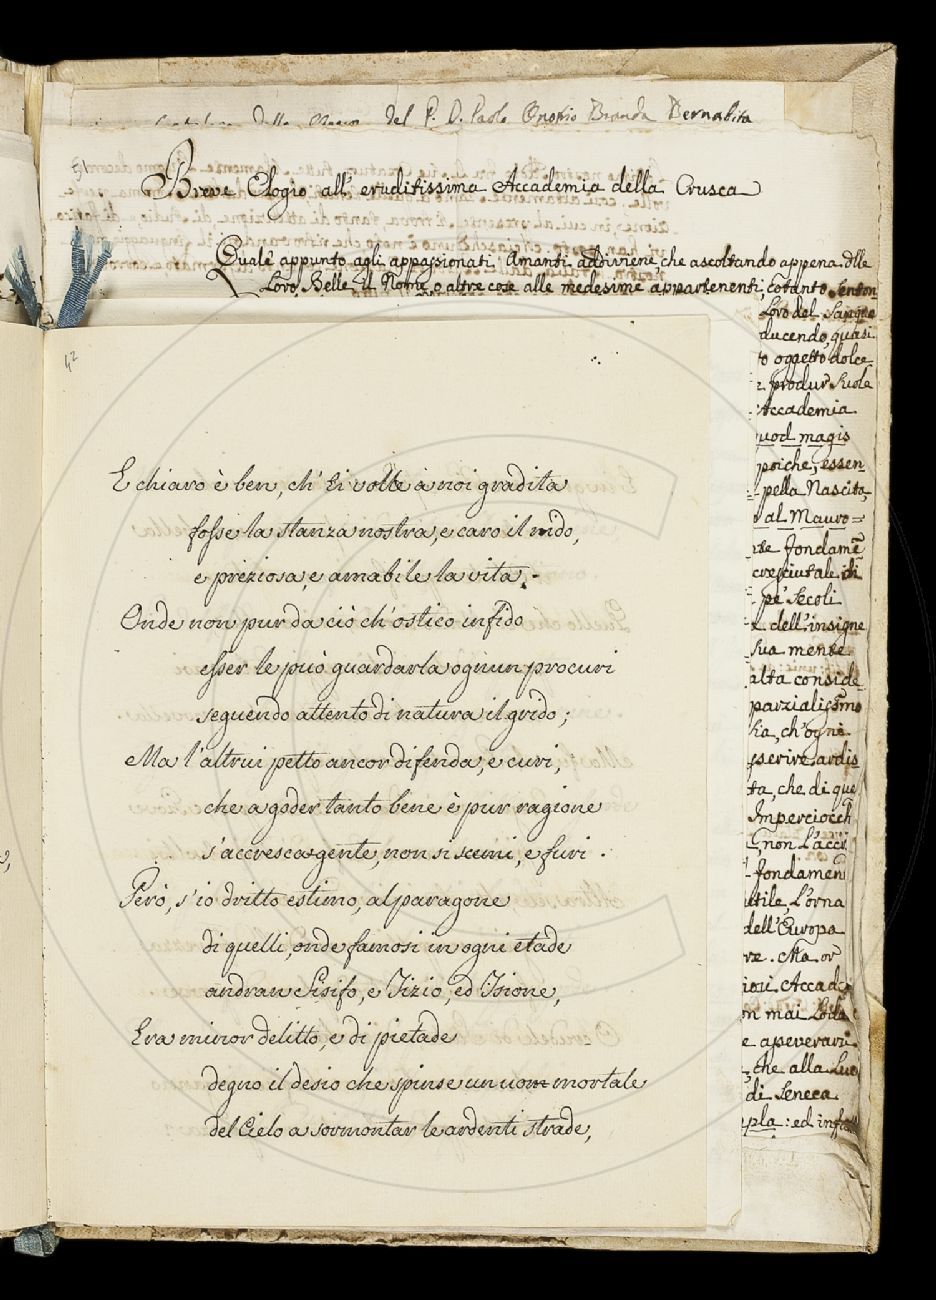 del P. D. Paolo Onofrio Branda Bernabita
Breve Elogio all' eruditissima Accademia della Crusca
Quale appunto agli appassionati Amanti addiviene che ascoltando appena dlle
Loro Belle il Nome o altre cose alle medesime appartenenti, cotanto senton
Loro del Sangue
ducendo, quasi
to oggetto dolce
produr suole
Accademia
quod magis
poiche, essen
pella Nascita,
al Mauro=
fondamē
cresciutale di
pe' Secoli
dell'insigne
sua mente
alta conside
parzialissmo
ch'ogni
sserire ardis
ta, che di que
Imperciocch
non L'accr
fondamen
utile, L'orna
dell'Europa
Ma or
Accade
on mai Loda
e asseverari
che alla Luc
di Seneca
pla: ed infa
42
E chiaro è ben, ch' ti volle a noi gradita
fosse la stanza nostra, e caro il nido,
e preziosa, e amabile la vita.
Onde non pur da ciò ch'ostico infido
esser le può guardarla ognun procuri
seguendo attento di natura il grido;
Ma l'altrui petto ancor difenda, e curi,
che a goder tanto bene è pur ragione
s'accresca gente, non si scemi, e furi.
Però, s'io dritto estimo, al paragone
di quelli, onde famosi in ogni etade
andran Sisifo, e Tizio, ed Isione,
Era minor delitto, e di pietade
degno il desio che spinse un uom mortale
del Cielo a sormontar le ardenti strade,